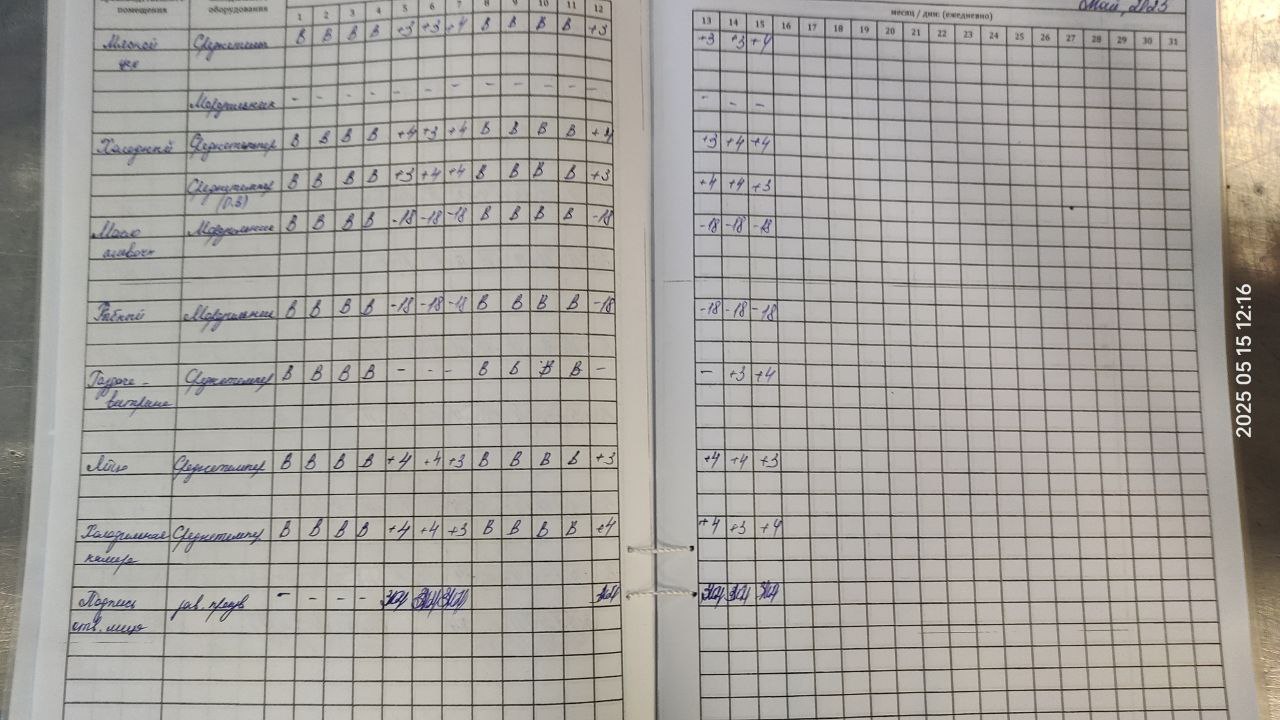 помещения оборудования 1 2 3 4 5 6 7 8 9 10 11 12
Май, 2025
месяц / дни: (ежедневно)
13 14 15 16 17 18 19 20 21 22 23 24 25 26 27 28 29 30 31
Мясной В В В В +3 +3 +4 В В В В +3 +3 +3 +4
цех
Морозильник - - - - - - - - - - - - - - -
Холодный Среднетемпер В В В В +4 +3 +4 В В В В +4 +3 +4 +4
Среднетемпер В В В В +3 +4 +4 В В В В +3 +4 +4 +3
(О.В)
Масло Морозильник В В В В -18 -18 -18 В В В В -18 -18 -18 -18
сливочн
Рыбный Морозильник В В В В -18 -18 -18 В В В В -18 -18 -18 -18
Среднетемпер В В В В - - - В В В В - - +3 +4
витрина
Яйцо Среднетемпер В В В В +4 +4 +3 В В В В +3 +4 +4 +3
Холодильная Среднетемпер В В В В +4 +4 +3 В В В В +4 +4 +3 +4
камера
Подпись зав. произв - - - -
отв. лица
2025 05 15 12:16